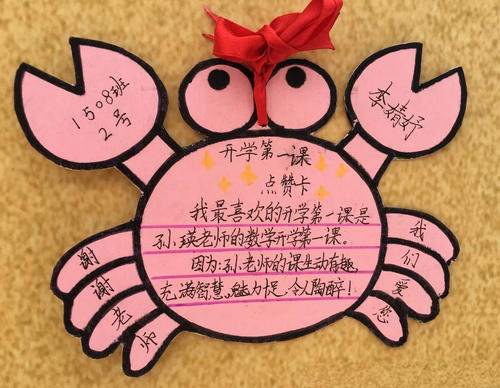 1508班
2号
李婧妤
开学第一课
点赞卡
我最喜欢的开学第一课是
孙瑛老师的数学开学第一课。
因为:孙老师的课生动有趣,
充满智慧,魅力十足,令人陶醉!
谢谢老师
我们爱您